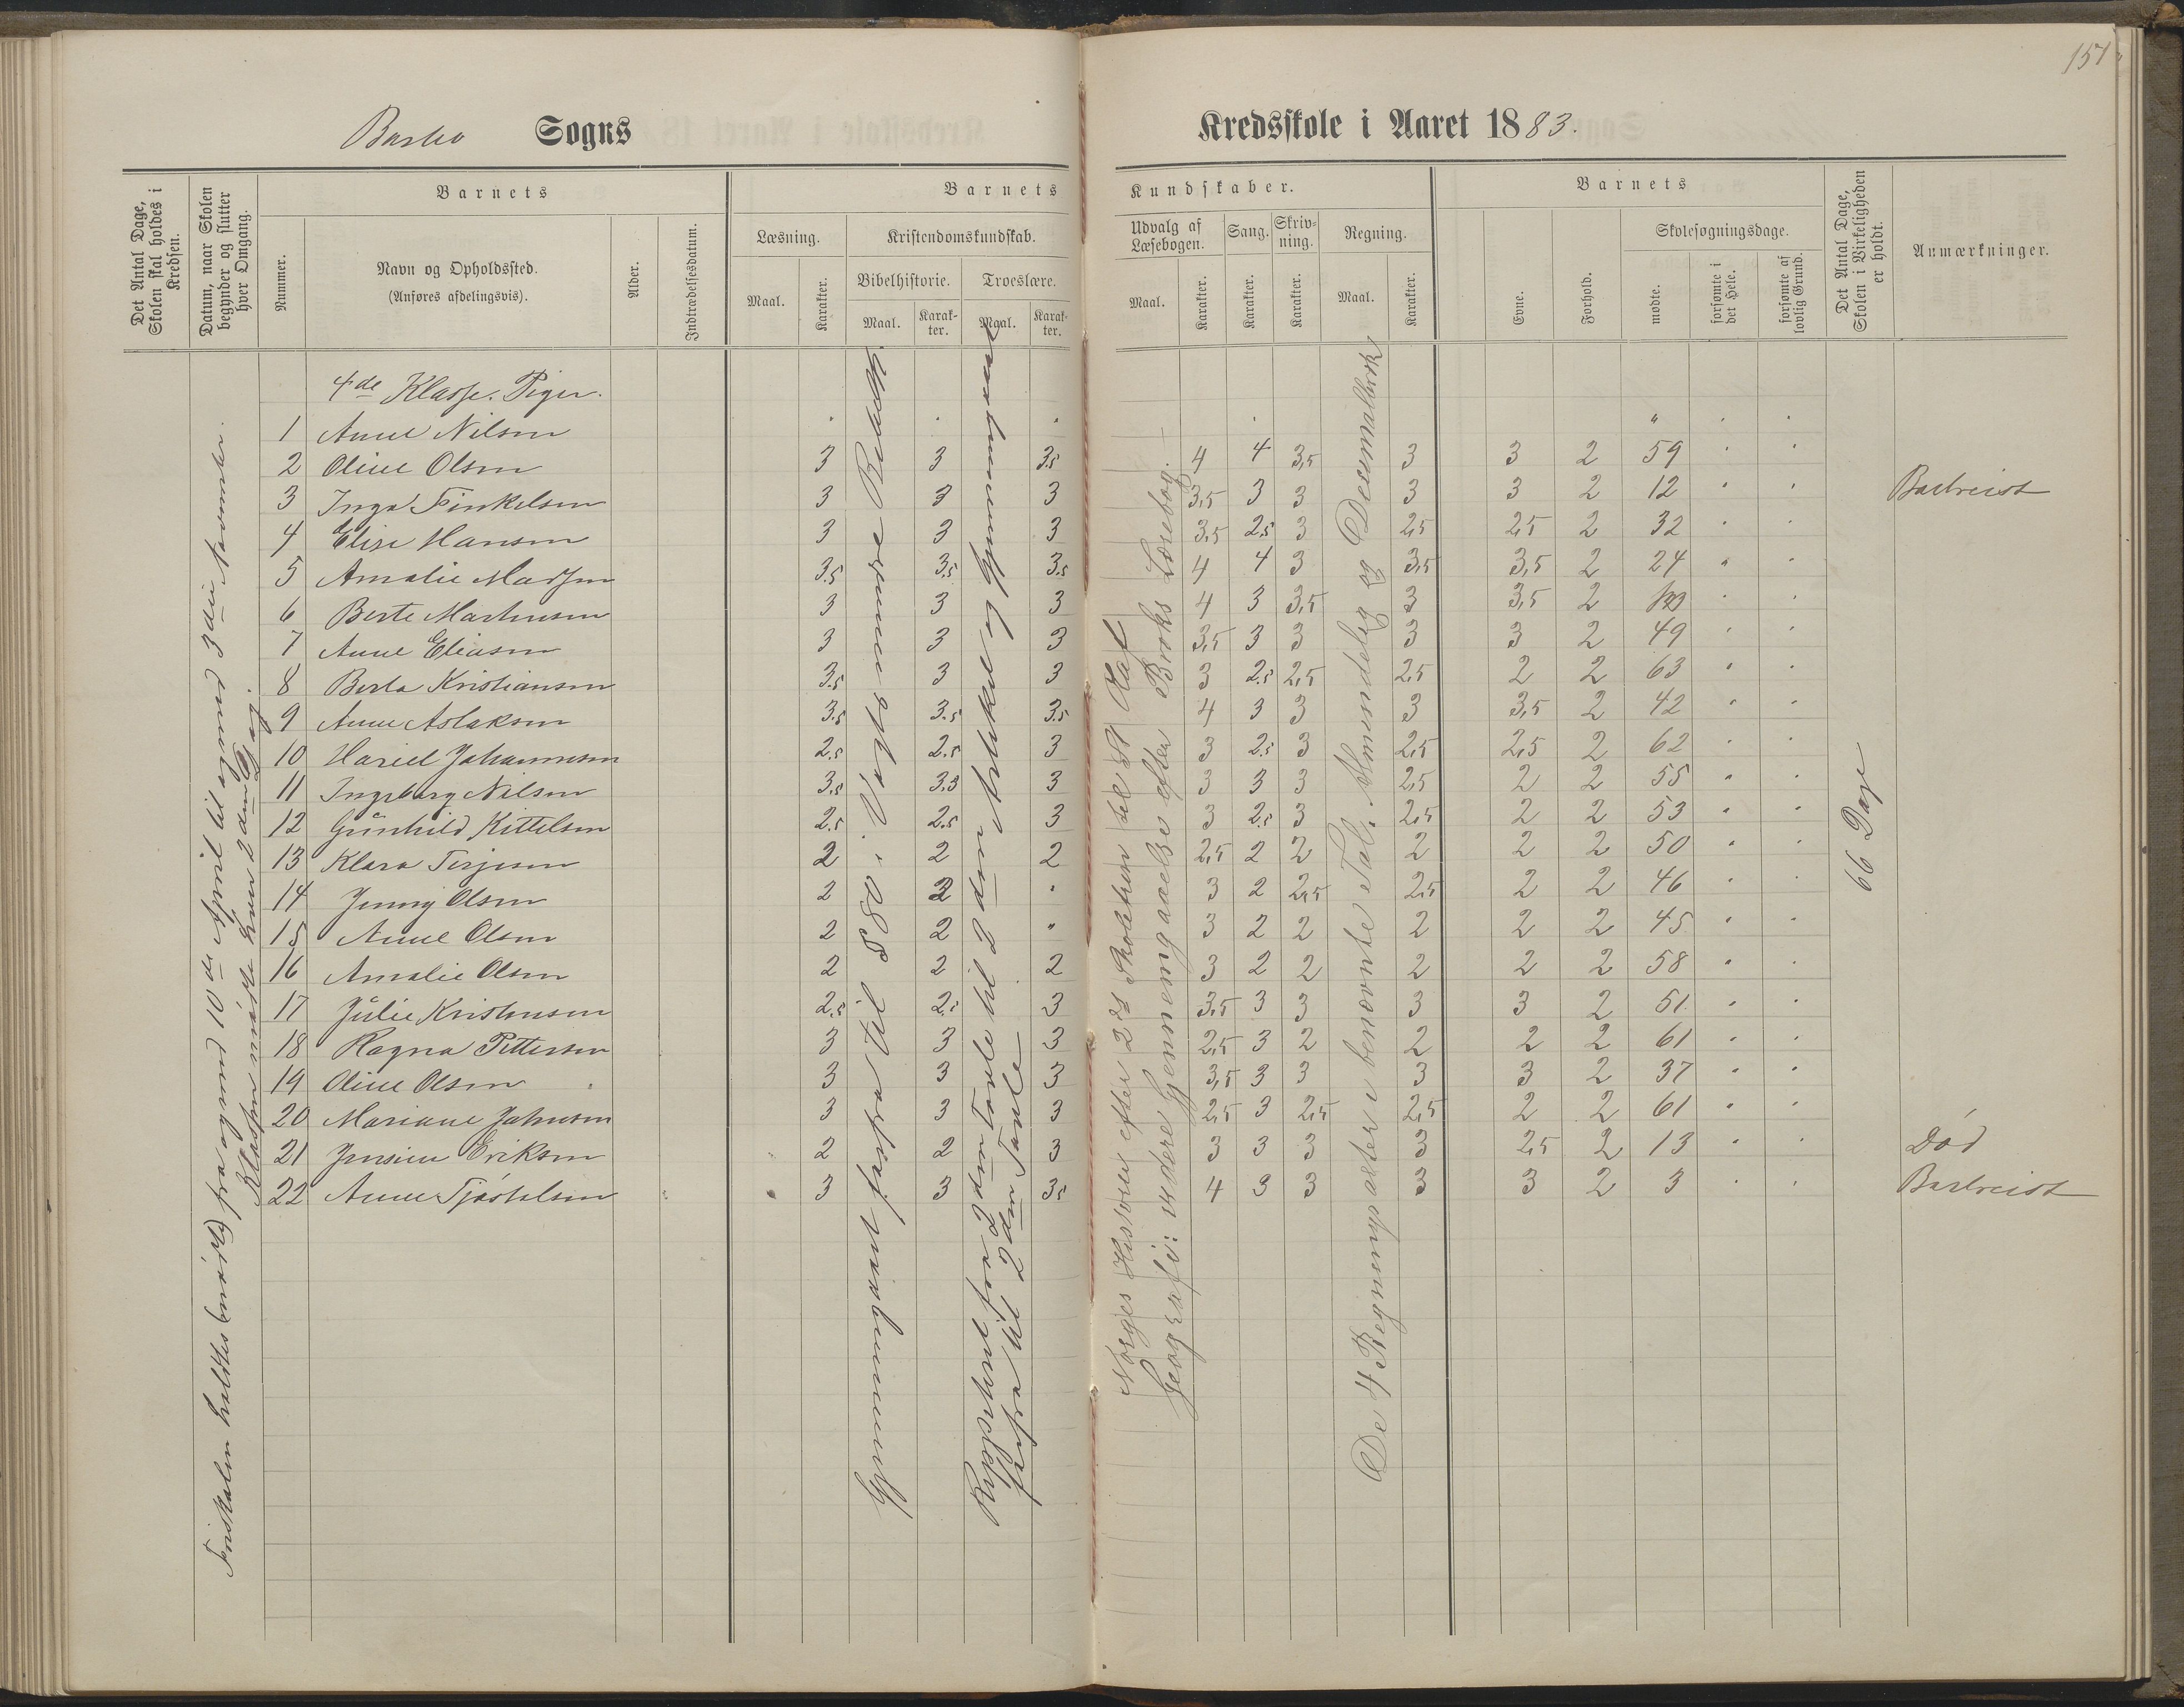 151
Barbo Sogns
Kredsskole i Aaret 1883.
Det Antal Dage, Skolen skal holdes i Kredsen.
Datum, naar Skolen begynder og slutter hver Omgang.
Nummer.
Barnets
Navn og Opholdssted.
(Anføres afdelingsvis).
Alder.
Indtrædelsesdatum.
Barnets Kundskaber.
Læsning.
Maal.
Karakter.
Kristendomskundskab.
Bibelhistorie.
Maal.
Karakter.
Troeslære.
Maal.
Karakter.
Udvalg af Læsebogen.
Maal.
Karakter.
Sang.
Karakter.
Skrivning.
Karakter.
Regning.
Maal.
Karakter.
Barnets
Evne.
Forhold.
Skolesøgningsdage.
mødte.
forsømte i det Hele.
forsømte af lovlig Grund.
Det Antal Dage, Skolen i Virkeligheden er holdt.
Anmærkninger.
4de Klasse. Piger.
1 Anne Nilsen
2 Oline Olsen 3 3 3.5 4 4 3,5 3 3 2 59
3 Inga Finkelsen 3 3 3 3,5 3 3 3 3 2 12 Bortreist
4 Elise Hansen 3 3 3 3,5 2.5 3 2,5 2,5 2 32
5 Amalie Madsen 3.5 3.5 3.5 4 4 3 3,5 3,5 2 24
6 Berte Markusen 3 3 3 4 3 3,5 3 3,5 2
7 Anne Eliasen 3 3 3 3,5 3 3 3 3 2 49
8 Berta Kristiansen 3.5 3 3 3 2.5 2,5 2,5 2 2 63
9 Anne Aslaksen 3.5 3.5 3.5 4 3 3 3 3,5 2 42
10 Hariet Johannesen 2.5 2.5 3 3 2.5 3 2,5 2,5 2 62
11 Ingeborg Nilsen 3.5 3.5 3 3 3 3 2,5 2 2 55
12 Gunhild Kittelsen 2.5 2.5 3 3 2.5 3 2,5 2 2 53
13 Klara Terjesen 2 2 2 2,5 2 2 2 2 2 50
14 Jenny Olsen 2 2 3 2 2,5 2,5 2 2 46
15 Anne Olsen 2 2 " 3 2 2 2 2 2 45
16 Amalie Olsen 2 2 2 3 2 2 2 2 2 58
17 Julie Kristensen 2.5 2.5 3 3,5 3 3 3 3 2 51
18 Ragna Pettersen 3 3 3 2,5 3 2 2 2 2 61
19 Oline Olsen 3 3 3 3,5 3 3 3 3 2 37
20 Mariane Johnsen 3 3 3 2,5 3 2,5 2,5 2 2 61
21 Jensine Eriksen 2 2 3 3 3 3 3 2,5 2 13 Død
22 Anne Tjøstelsen 3 3 3.5 4 3 3 3 3 2 3 Bortreist
Friskolen holdtes (mødt) fra og med 10de April til og med 3die November.
Klassen mødte hver 2den Gang.
Gjennemgaaet forfra til 88 i Vogts
Reppeteret fra 2den Tavle til 2den Artikel og gjennemgaaet
forfra til 2den Tavle
Norges Historie efter 2det Skoletrin til St Olaf
Geografi: videre Gjennemgaaelse efter Broks Lærebog.
De 4 Regningsarter i benævnte Tal. Almindelig og Decemalbrøk
66 Dage